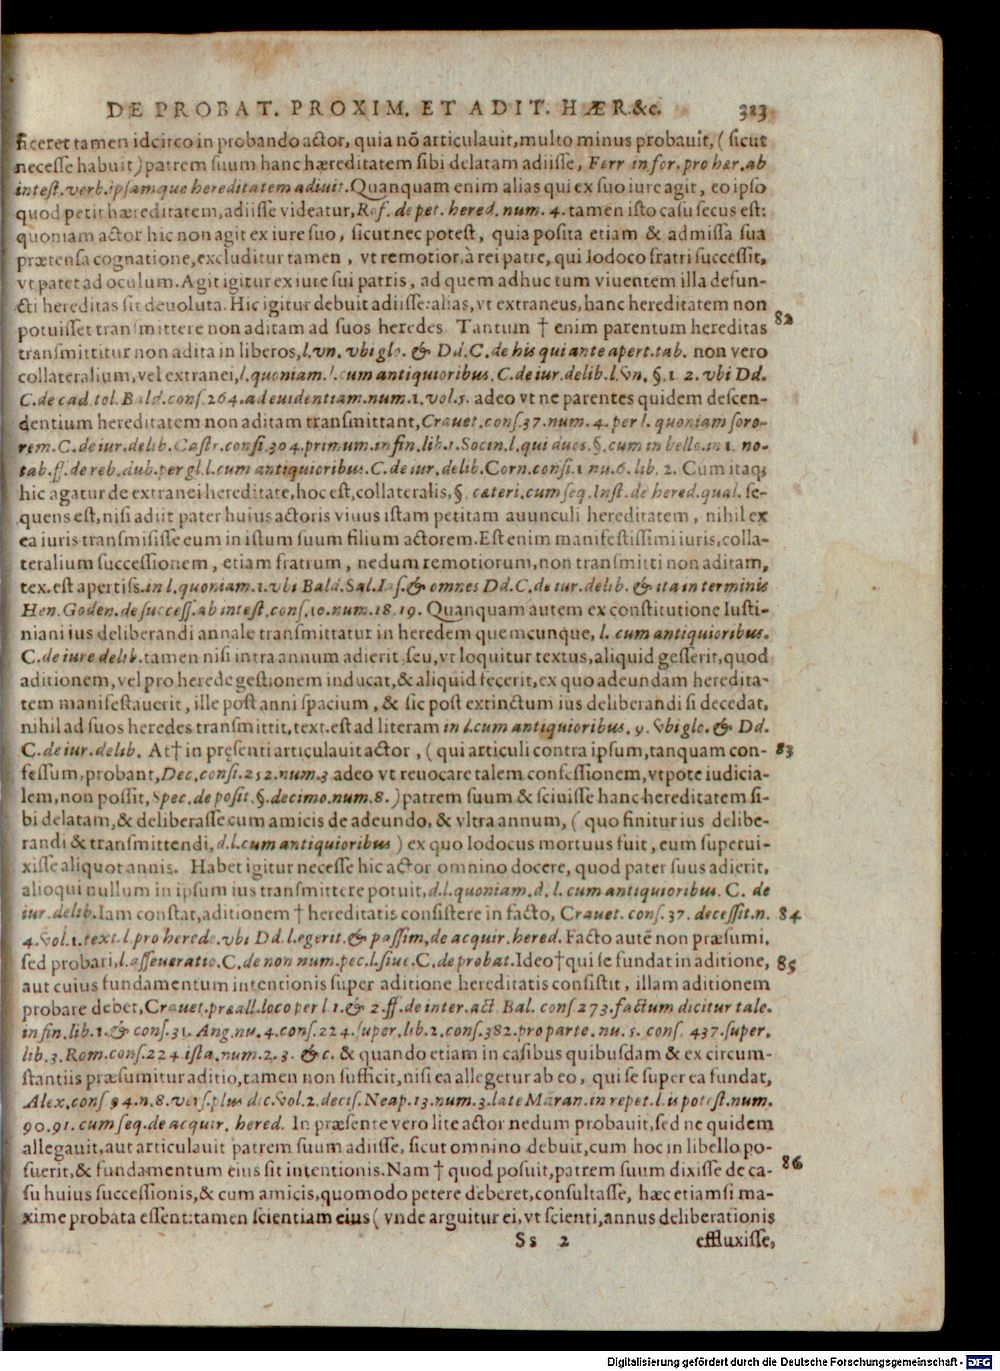 DE PROBAT. PROXIM. ET ADIT. HÆR.&c. 323
ficeret tamen idcirco in probando actor, quia nō articulauit, multo minus probauit, ( sicut
necesse habuit ) patrem suum hanc hæreditatem sibi delatam adiisse, Ferr in for. pro her. ab
intest. verb. ipsamque hereditatem adiuit. Quanquam enim alias qui ex suo iure agit, eo ipso
quod petit hæreditatem, adiisse videatur, Rof. de pet. hered. num. 4. tamen isto casu secus est:
quoniam actor hic non agit ex iure suo, sicut nec potest, quia posita etiam & admissa sua
prætensa cognatione, excluditur tamen, vt remotior, à rei patre, qui Iodoco fratri successit,
vt patet ad oculum. Agit igitur ex iure sui patris, ad quem adhuc tum viuentem illa defun-
cti hereditas sit deuoluta. Hic igitur debuit adiisse: alias, vt extraneus, hanc hereditatem non
potuisset transmittere non aditam ad suos heredes. Tantum † enim parentum hereditas 82
transmittitur non adita in liberos, l. vn. vbi glo. & Dd. C. de his qui ante apert. tab. non vero
collateralium, vel extranei, l. quoniam. l. cum antiquioribus. C. de iur. delib. l. vn. §. 1. 2. vbi Dd.
C. de cad. tol. Bald. cons. 264. ad euidentiam. num. 1. vol. 5. adeo vt ne parentes quidem descen-
dentium hereditatem non aditam transmittant, Crauet. cons. 37. num. 4. per l. quoniam soro-
rem. C. de iur. delib. Castr. consi. 304. primum. in fin. lib. 1. Socin. l. qui duos. §. cum in bello. in 1. no-
tab. ff. de reb. dub. per gl. l. cum antiquioribus. C. de iur. delib. Corn. consi. 1 nu. 6. lib. 2. Cum itaq;
hic agatur de extranei hereditate, hoc est, collateralis, §. cæteri. cum seq. Inst. de hered. qual. se-
quens est, nisi adiit pater huius actoris viuus istam petitam auunculi hereditatem, nihil ex
ea iuris transmisisse eum in istum suum filium actorem. Est enim manifestissimi iuris, colla-
teralium successionem, etiam fratrum, nedum remotiorum, non transmitti non aditam,
tex. est apertiss. in l. quoniam. 1. vbi Bald. Sal. Ias. & omnes Dd. C. de iur. delib. & ita in terminis
Hen. Goden. de success. ab intest. cons. 10. num. 18. 19. Quanquam autem ex constitutione Iusti-
niani ius deliberandi annale transmittatur in heredem quemcunque, l. cum antiquioribus.
C. de iure delib. tamen nisi intra annum adierit seu, vt loquitur textus, aliquid gesserit, quod
aditionem, vel pro herede gestionem inducat, & aliquid fecerit, ex quo adeundam heredita-
tem manifestauerit, ille post anni spacium, & sic post extinctum ius deliberandi si decedat,
nihil ad suos heredes transmittit, text. est ad literam in l. cum antiquioribus. 9. vbi glo. & Dd.
C. de iur. delib. At † in præsenti articulauit actor, ( qui articuli contra ipsum, tanquam con- 83
fessum, probant, Dec. consi. 252. num. 3. adeo vt reuocare talem confessionem, vtpote iudicia-
lem, non possit, Spec. de posit. §. decimo. num. 8. ) patrem suum & sciuisse hanc hereditatem si-
bi delatam, & deliberasse cum amicis de adeundo, & vltra annum, ( quo finitur ius delibe-
randi & transmittendi, d. l. cum antiquioribus ) ex quo Iodocus mortuus fuit, eum superui-
xisse aliquot annis. Habet igitur necesse hic actor omnino docere, quod pater suus adierit,
alioqui nullum in ipsum ius transmittere potuit, d. l. quoniam. d. l. cum antiquioribus. C. de
iur. delib. Iam constat, aditionem † hereditatis consistere in facto, Crauet. cons. 37. decessit. n. 84
4. vol. 1. text. l. pro herede. vbi Dd. l. egerit. & passim, de acquir. hered. Facto autē non præsumi,
sed probari, l. asseueratio. C. de non num. pec. l. siue. C. de probat. Ideo † qui se fundat in aditione, 85
aut cuius fundamentum intentionis super aditione hereditatis consistit, illam aditionem
probare debet, Crauet. præall. loco per l 1. & 2. ff. de inter. act Bal. cons 273. factum dicitur tale.
in fin. lib. 1. & cons. 31. Ang. nu. 4. cons. 224. super. lib. 2. cons. 382. pro parte. nu. 5. cons. 437. super.
lib. 3. Rom. cons. 224. ista. num. 2. 3. &c. & quando etiam in casibus quibusdam & ex circum-
stantiis præsumitur aditio, tamen non sufficit, nisi ea allegetur ab eo, qui se super ea fundat,
Alex. cons 94. n. 8. vers. plus dic. vol. 2. decis. Neap. 13. num. 3. late Maran. in repet. l. is potest. num.
90. 91. cum seq. de acquir. hered. In præsente vero lite actor nedum probauit, sed ne quidem
allegauit, aut articulauit patrem suum adiisse, sicut omnino debuit, cum hoc in libello po-
suerit, & fundamentum eius sit intentionis. Nam † quod posuit, patrem suum dixisse de ca- 86
su huius successionis, & cum amicis, quomodo petere deberet, consultasse, hæc etiamsi ma-
xime probata essent: tamen scientiam eius ( vnde arguitur ei, vt scienti, annus deliberationis
Ss 2 effluxisse,
Digitalisierung gefördert durch die Deutsche Forschungsgemeinschaft - DFG